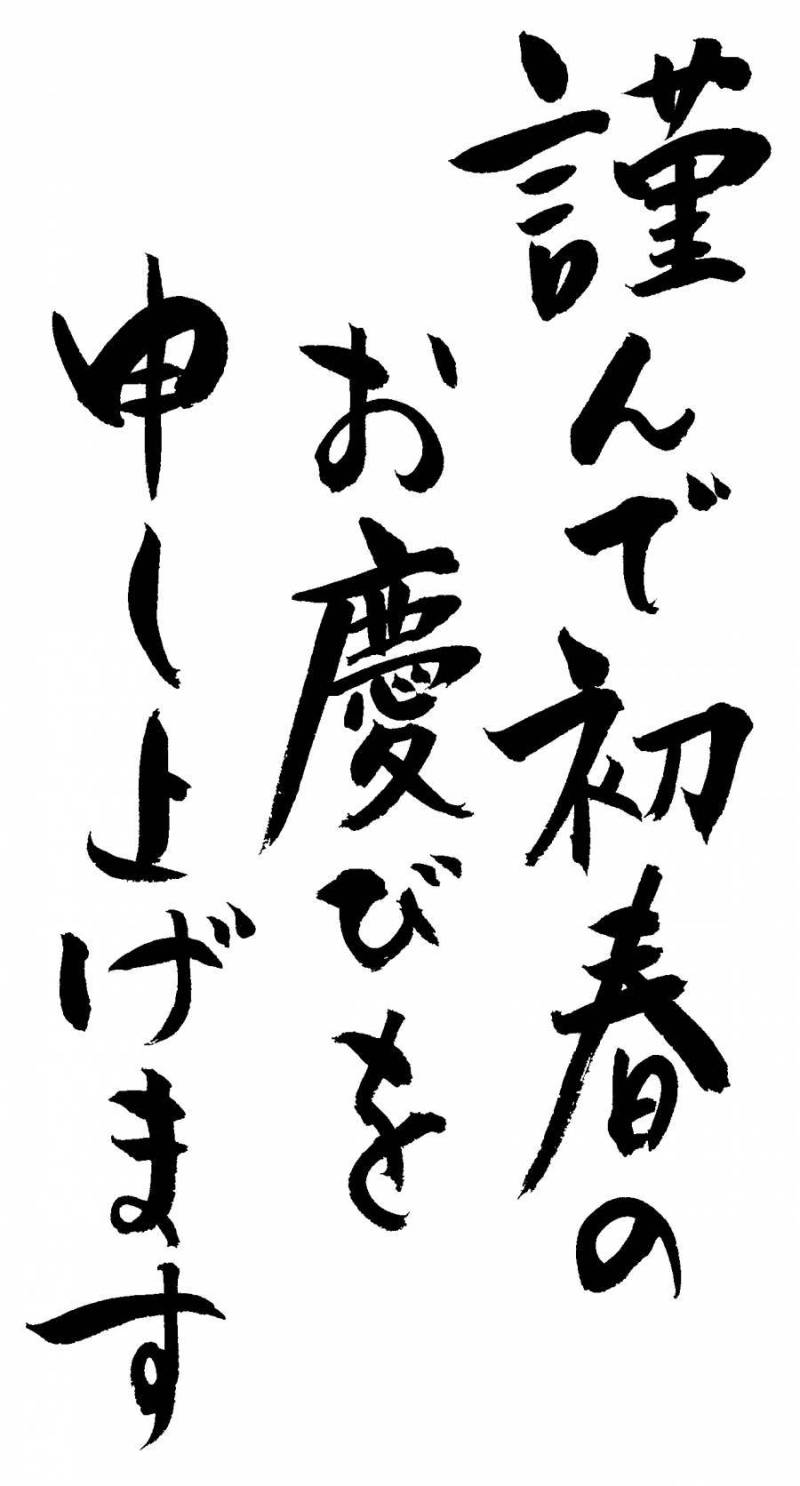 謹んで初春の
お慶びを
申し上げます